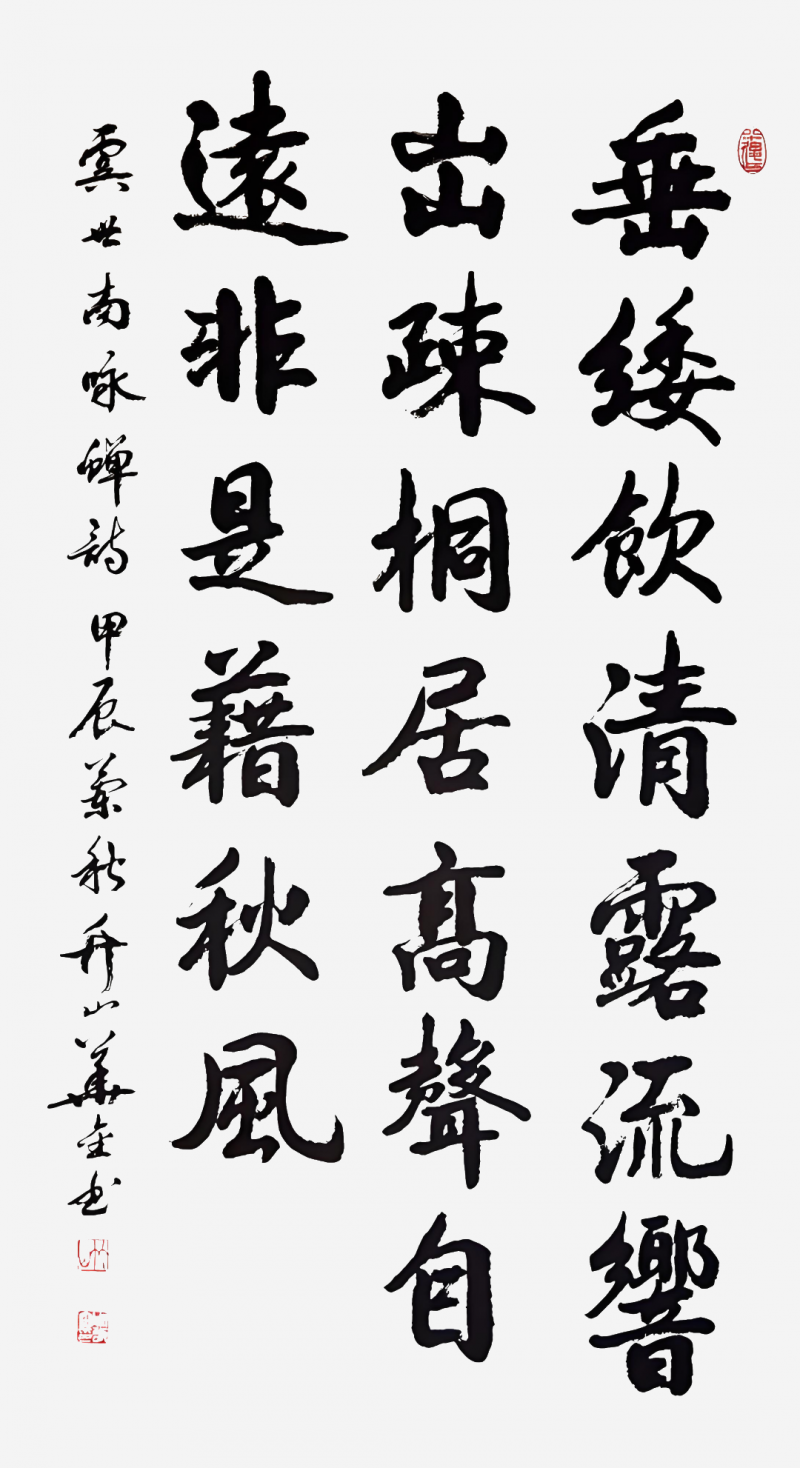 垂緌飲清露流響
出疎桐居高聲自
遠非是藉秋風
虞世南咏蟬詩 甲辰蘭秋竹山華金书